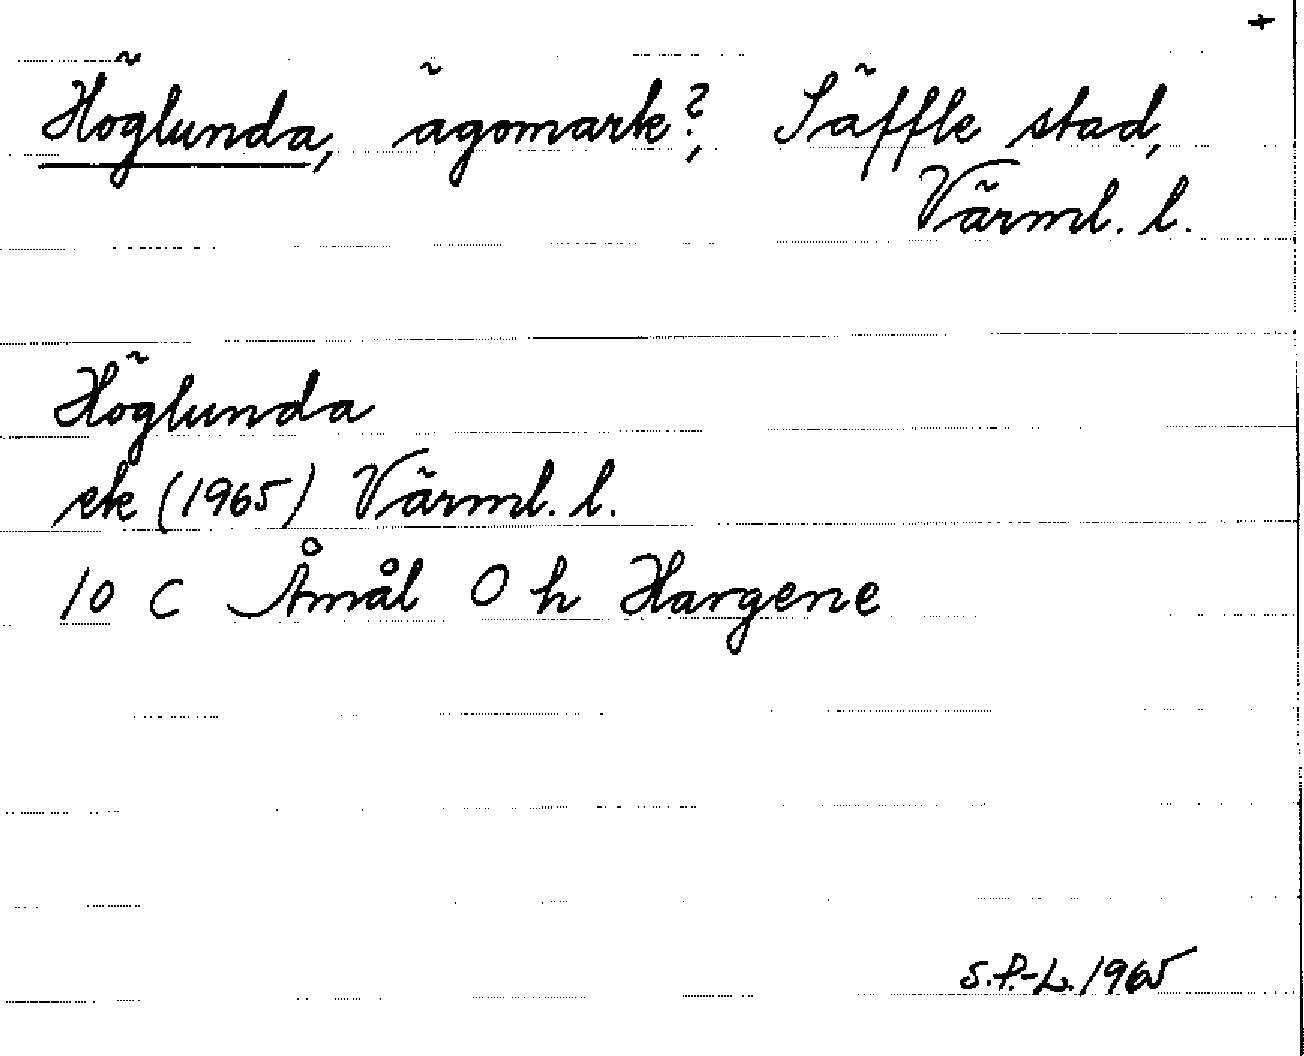 +
Höglunda, ägomark?, Säffle stad,
Värml. l.
Höglunda
ek (1965) Värml. l.
10 C Åmål O h Hargene
S.P.-L. 1965